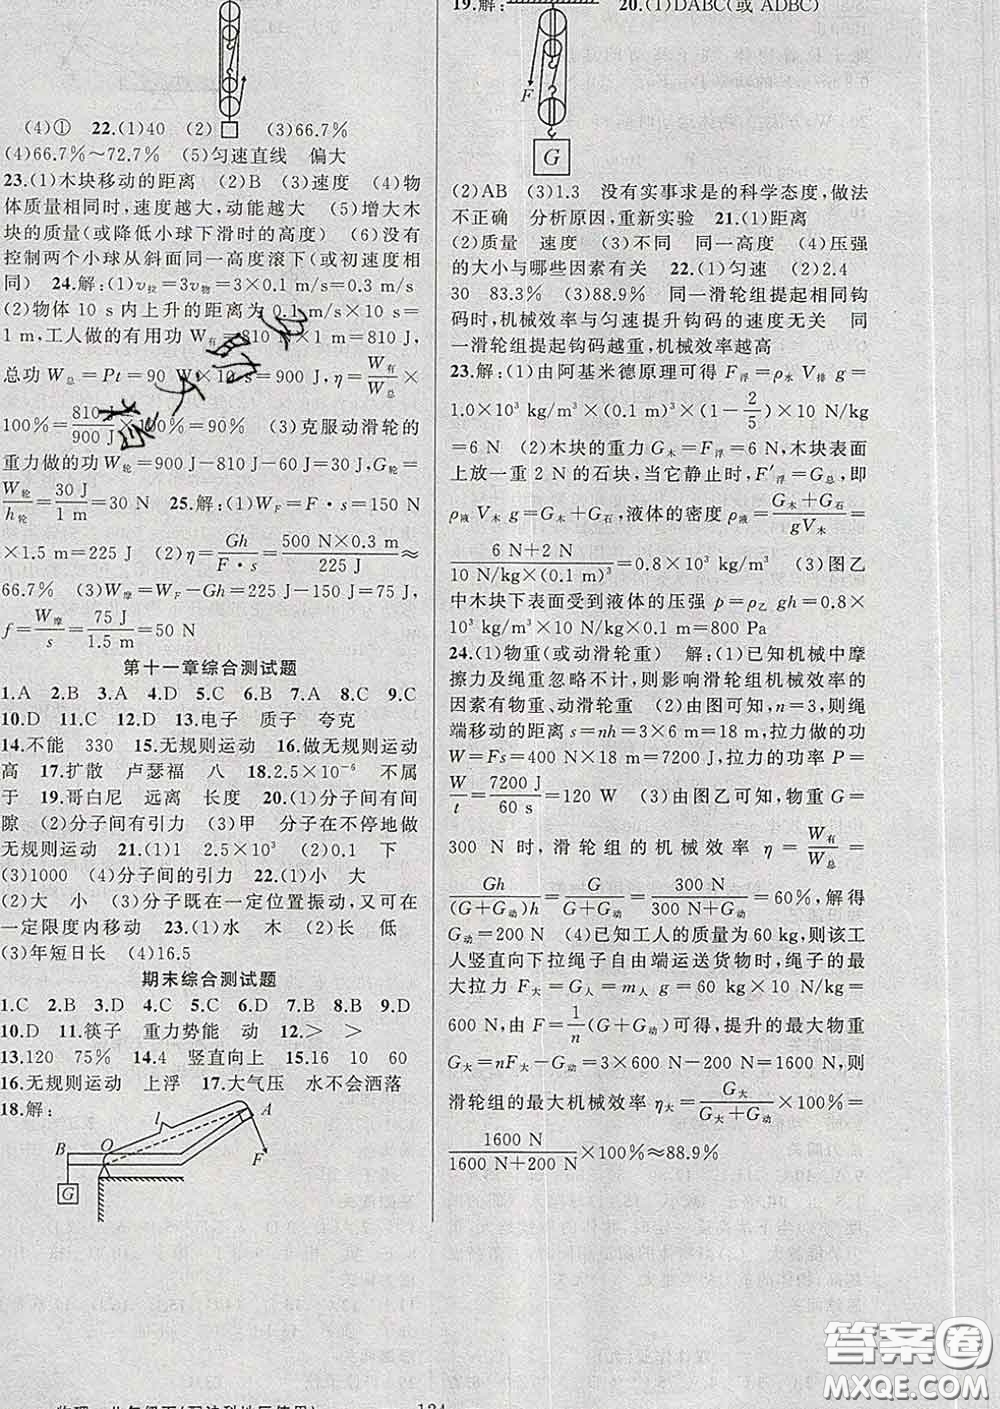 (4)① 22.(1)40 (2) (3)66.7%
(4)66.7%～72.7% (5)匀速直线 偏大
23.(1)木块移动的距离 (2)B (3)速度 (4)物
体质量相同时,速度越大,动能越大 (5)增大木
块的质量(或降低小球下滑时的高度) (6)没有
控制两个小球从斜面同一高度滚下(或初速度相
同) 24.解:(1)v拉=3v物=3×0.1 m/s=0.3 m/s
(2)物体 10 s 内上升的距离为 0.1 m/s×10 s=
1 m,工人做的有用功 W有=810 N×1 m=810 J,
总功 W总=Pt=90 W×10 s=900 J,η=W有/W总×
100%=810 J/900 J×100%=90% (3)克服动滑轮的
重力做的功 W轮=900 J-810 J-60 J=30 J,G轮=
W轮/h轮=30 J/1 m=30 N 25.解:(1)WF=F·s=150 N
×1.5 m=225 J (2)η=Gh/F·s=500 N×0.3 m/225 J≈
66.7% (3)W摩=WF-Gh=225 J-150 J=75 J,
f=W摩/s=75 J/1.5 m=50 N
第十一章综合测试题
1.A 2.B 3.A 4.D 5.C 6.B 7.A 8.C 9.C
10.D 11.C 12.D 13.电子 质子 夸克
14.不能 330 15.无规则运动 16.做无规则运动
高 17.扩散 卢瑟福 八 18.2.5×10⁻⁶ 不属
于 19.哥白尼 远离 长度 20.(1)分子间有间
隙 (2)分子间有引力 (3)甲 分子在不停地做
无规则运动 21.(1)1 2.5×10³ (2)0.1 下
(3)1000 (4)分子间的引力 22.(1)小 大
(2)大 小 (3)分子既在一定位置振动,又可在
一定限度内移动 23.(1)水 木 (2)长 低
(3)年短日长 (4)16.5
期末综合测试题
1.C 2.B 3.D 4.D 5.C 6.B 7.C 8.A 9.D
10.D 11.筷子 重力势能 动 12.> >
13.120 75% 14.4 竖直向上 15.16 10 60
16.无规则运动 上浮 17.大气压 水不会洒落
18.解:
l A B O F G
19.解: 20.(1)DABC(或 ADBC)
F
G
(2)AB (3)1.3 没有实事求是的科学态度,做法
不正确 分析原因,重新实验 21.(1)距离
(2)质量 速度 (3)不同 同一高度 (4)压强
的大小与哪些因素有关 22.(1)匀速 (2)2.4
30 83.3% (3)88.9% 同一滑轮组提起相同钩
码时,机械效率与匀速提升钩码的速度无关 同
一滑轮组提起钩码越重,机械效率越高
23.解:(1)由阿基米德原理可得 F浮=ρ水 V排 g=
1.0×10³ kg/m³×(0.1 m)³×(1-2/5)×10 N/kg
=6 N (2)木块的重力 G木=F浮=6 N,木块表面
上放一重 2 N 的石块,当它静止时,F′浮=G总,即
ρ液 V木 g=G木+G石,液体的密度 ρ液=G木+G石/gV木=
6 N+2 N/10 N/kg×(0.1 m)³=0.8×10³ kg/m³ (3)图乙
中木块下表面受到液体的压强 p=ρ乙 gh=0.8×
10³ kg/m³×10 N/kg×0.1 m=800 Pa
24.(1)物重(或动滑轮重) 解:(1)已知机械中摩
擦力及绳重忽略不计,则影响滑轮组机械效率的
因素有物重、动滑轮重 (2)由图可知,n=3,则绳
端移动的距离 s=nh=3×6 m=18 m,拉力做的功
W=Fs=400 N×18 m=7200 J,拉力的功率 P=
W/t=7200 J/60 s=120 W (3)由图乙可知,物重 G=
300 N 时,滑轮组的机械效率 η=W有/W总=
Gh/(G+G动)h=G/G+G动=300 N/300 N+G动=60%,解得
G动=200 N (4)已知工人的质量为 60 kg,则该工
人竖直向下拉绳子自由端运送货物时,绳子的最
大拉力 F大=G人=m人 g=60 kg×10 N/kg=
600 N,由 F=1/n(G+G动)可得,提升的最大物重
G大=nF大-G动=3×600 N-200 N=1600 N,则
滑轮组的最大机械效率 η大=G大/G大+G动×100%=
1600 N/1600 N+200 N×100%≈88.9%
答案圈
MXQE.COM